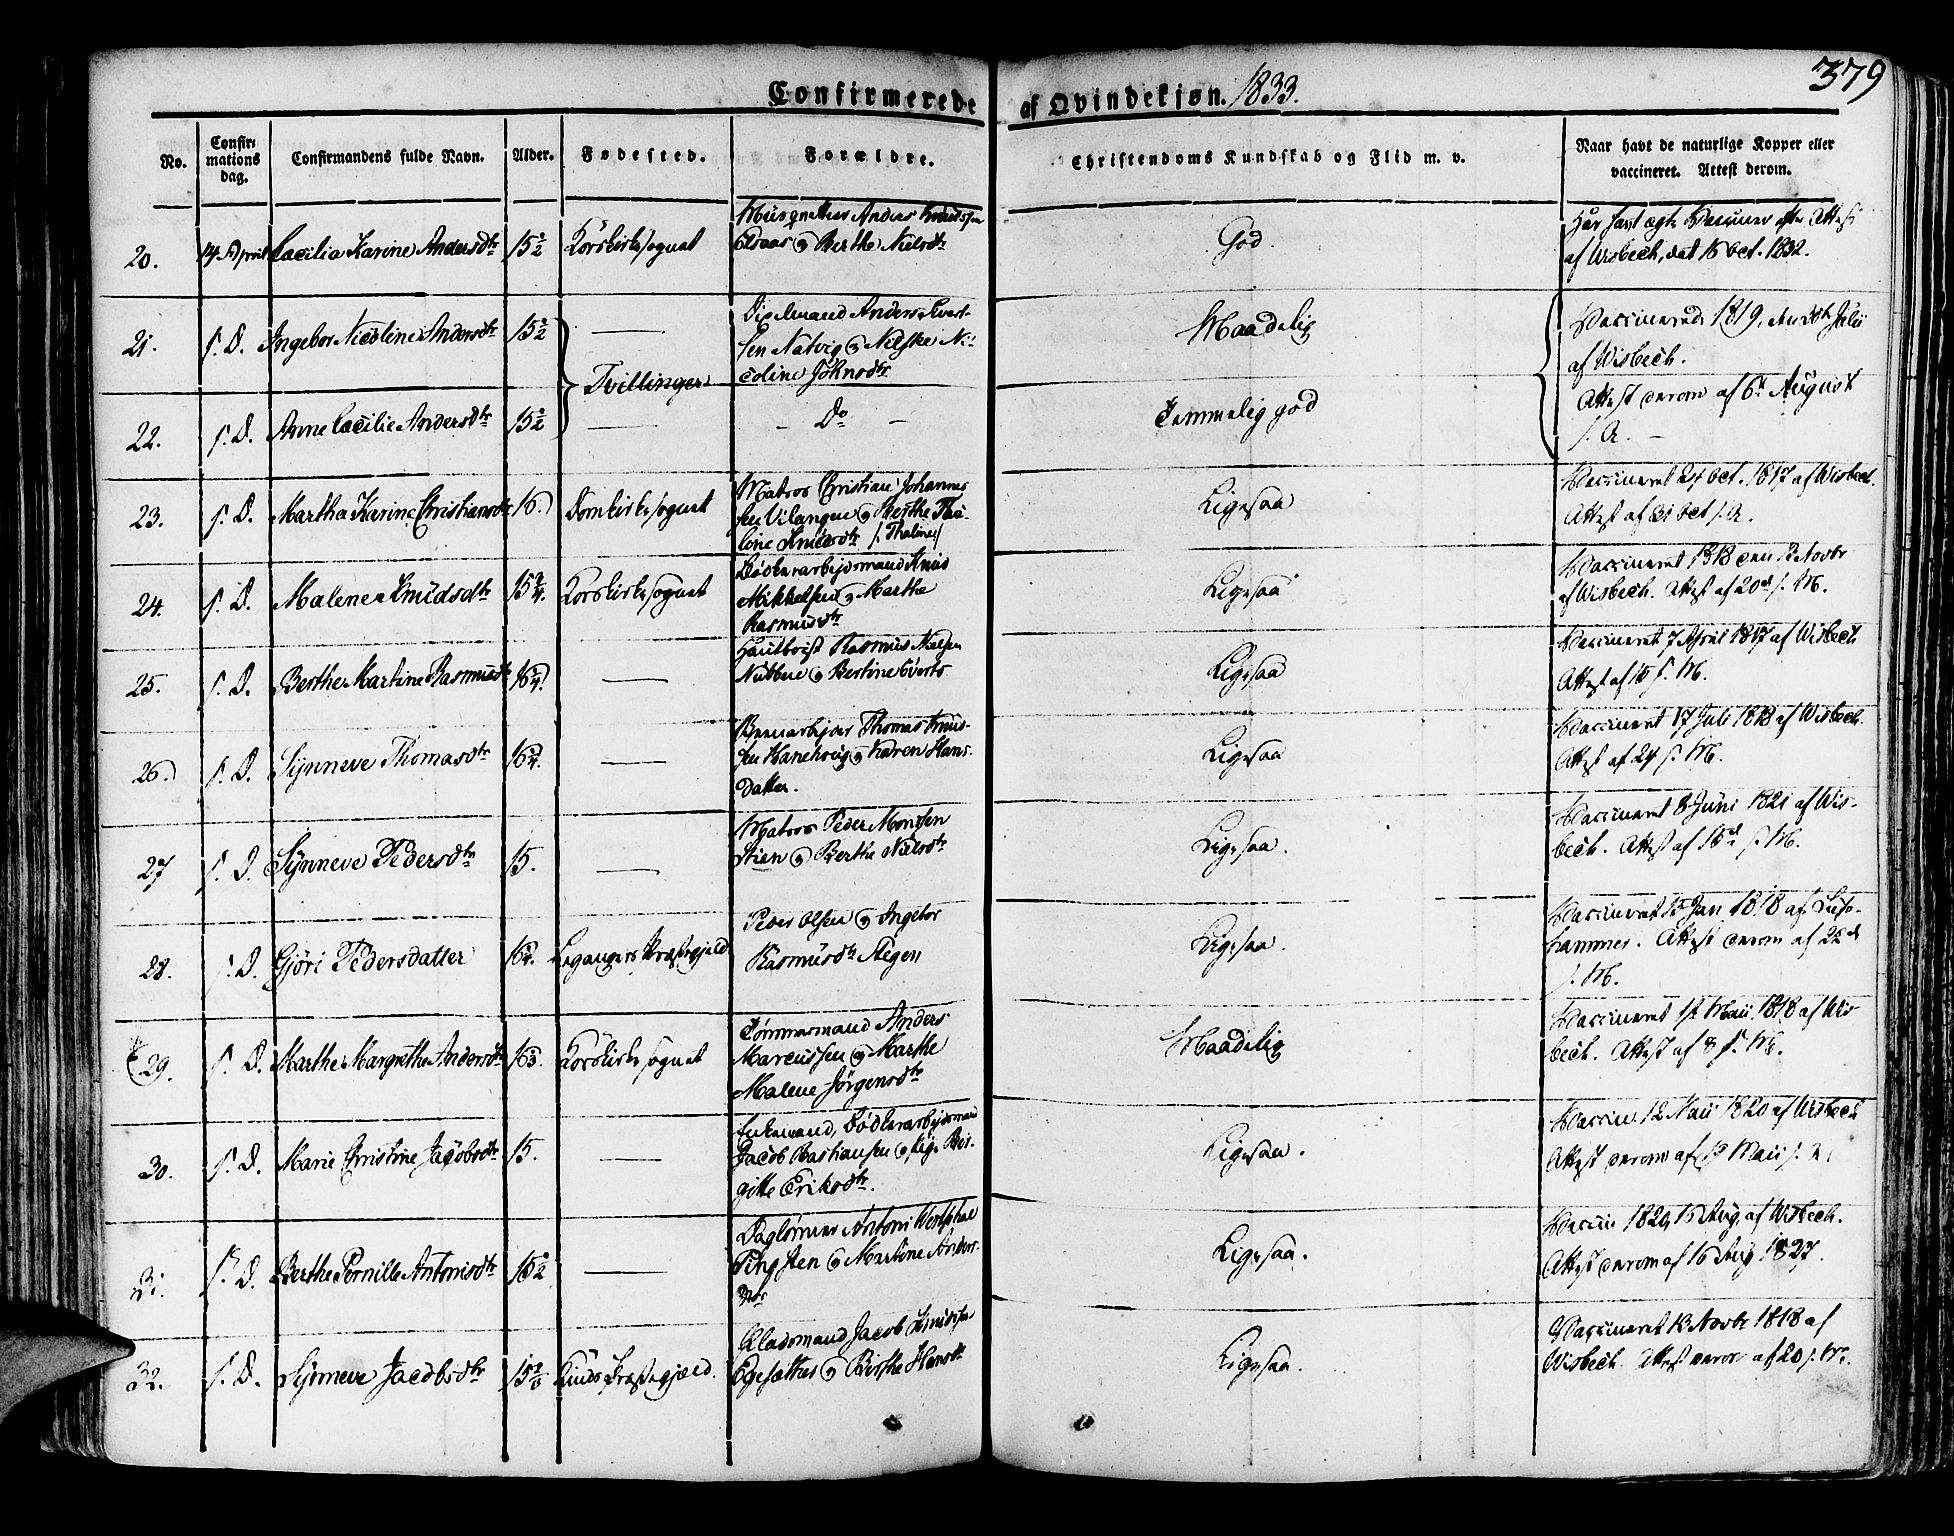 379
Confirmerede af Qvindekjøn. 1833.
No. Confirmations dag. Confirmandens fulde Navn. Alder. Fødested. Forældre. Christendoms Kundskab og Flid m. v. Naar havt de naturlige Kopper eller vaccineret. Attest derom.
20. 14. April Cæcilia Karine Andersdtr 15 1/2 Korskirkesognet
Anders Knudssen
og Berthe Nielsdtr
God.
af Wisbech, dat 18 Oct. 1832.
21. s. D. Ingebor Nicoline Andersdtr 15 1/2 Tvillinger
Anders Evert-
sen Natvig og Nilske Ni-
coline Johnsdtr.
Maadelig
Vaccinerede 1819, den 30te Julii
af Wisbech.
22. s. D. Anne Cæcilie Andersdtr 15 1/2 — Do —
Temmelig god
Attest derom af 6te August
s. A. —
23. s. D. Martha Karine Christiansdtr 16. Domkirkesognet
Matros Christian Johannes
sen Vilangen og Berthe Tha-
lone Knudsdtr /: Thaline :/
Ligesaa
Vaccineret 24 Oct. 1817 af Wisbech.
Attest af 31 Oct s. A.
24. s. D. Malene Knudsdtr 15 3/4. Korskirkesognet
Dødkerarbejdsmand Knud
Mikkelsen og Marthe
Rasmusdtr
Ligesaa
Vaccineret 1818 den 13 Novbr
af Wisbech. Attest af 20de s. M.
25. s. D. Berthe Martine Rasmusdtr 16 3/4. —
Hautboist Rasmus Nielsen
og Bertine Everts
Ligesaa
Vaccineret 7 April 1817 af Wisbech
Attest af 15 s. M.
26. s. D. Synneve Thomasdtr 16 3/4. —
Thomas Knud-
sen og Karen Hans-
datter.
Ligesaa
Vaccineret 17 Juli 1818 af Wisbech.
Attest af 24 s. M.
27 s. D. Synneve Pedersdtr 15. —
Matros Peder Monssen
Stien og Berthe Nielsdtr
Ligesaa.
Vaccineret 8 Juni 1821 af Wis-
bech. Attest af 15de s. M.
28. s. D. Gjøri Pedersdatter 16 3/4. Legangers Præstegjeld
Peder Olsen og Ingebor
Rasmusdtr Stegen
Ligesaa.
Vaccineret Jan 1818 af
hammer. Attest derom af 22de
s. M.
29. s. D. Marthe Margrethe Andersdtr 16 3/4. Korskirkesognet
Tømmermand Anders
Marcussen og Marthe
Malene Jörgensdtr
Maadelig
Vaccineret 1st Maii 1818 af Wis-
bech. Attest af 8 s. M.
30. s. D. Marie Christine Jacobsdtr 15. —
Enkemand, Dødkerarbejdsmand
Jacob Bastiansen og Pige Bir-
gitte Eriksdtr.
Ligesaa.
Vaccin. 12 Maii 1820 af Wisbech
Attest derom af Maii s. A.
31. s. D. Berthe Pernille Antonisdtr 15 1/2 —
Daglønner Antoni Westphal
og Martine Anders-
dtr
Ligesaa.
Vaccin 1820, 15 Aug. af Wisbech.
Attest derom af 15 Aug. 1827.
32. s. D. Synneve Jacobsdtr 15 Kinds Præstegjeld.
Jacob Knudssen
Egesætter og Birthe Hansdtr
Ligesaa.
Vaccineret 13 Novbr 1818 af
Wisbech. Attest derom af 20 s. M.